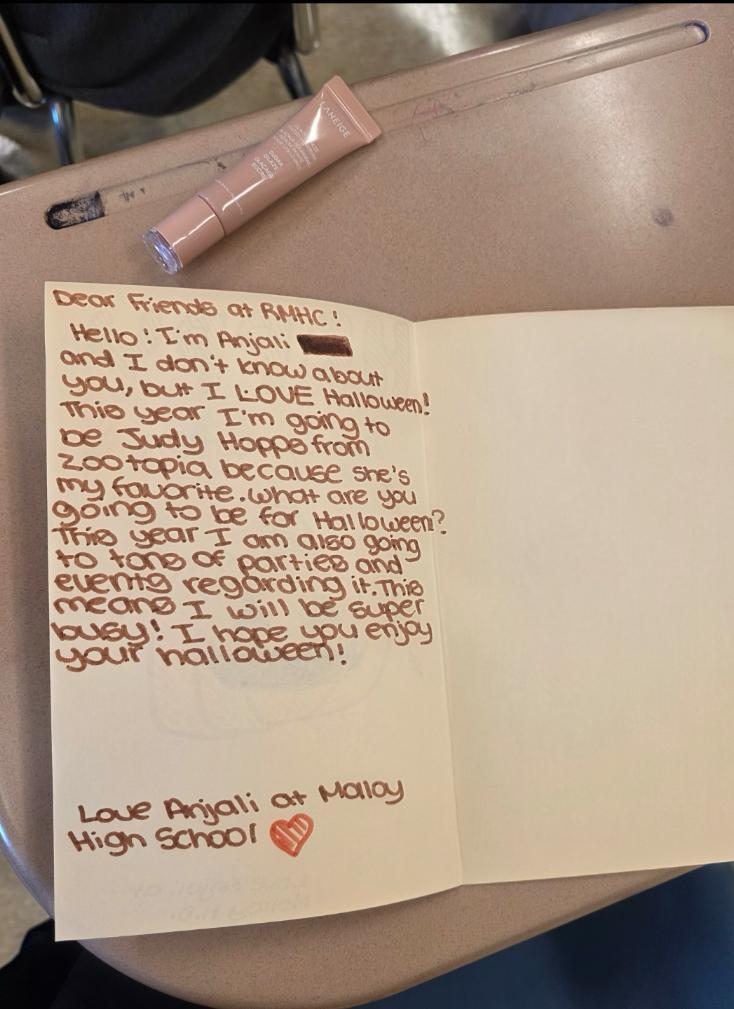 LANEIGE
Dear Friends at RMHC!
Hello! I'm Anjali
and I don't know about
you, but I LOVE Halloween!
This year I'm going to
be Judy Hopps from
Zootopia because she's
my favorite. What are you
going to be for Halloween?
This year I am also going
to tons of parties and
events regarding it. This
means I will be super
busy! I hope you enjoy
your halloween!
Love Anjali at Malloy
High School